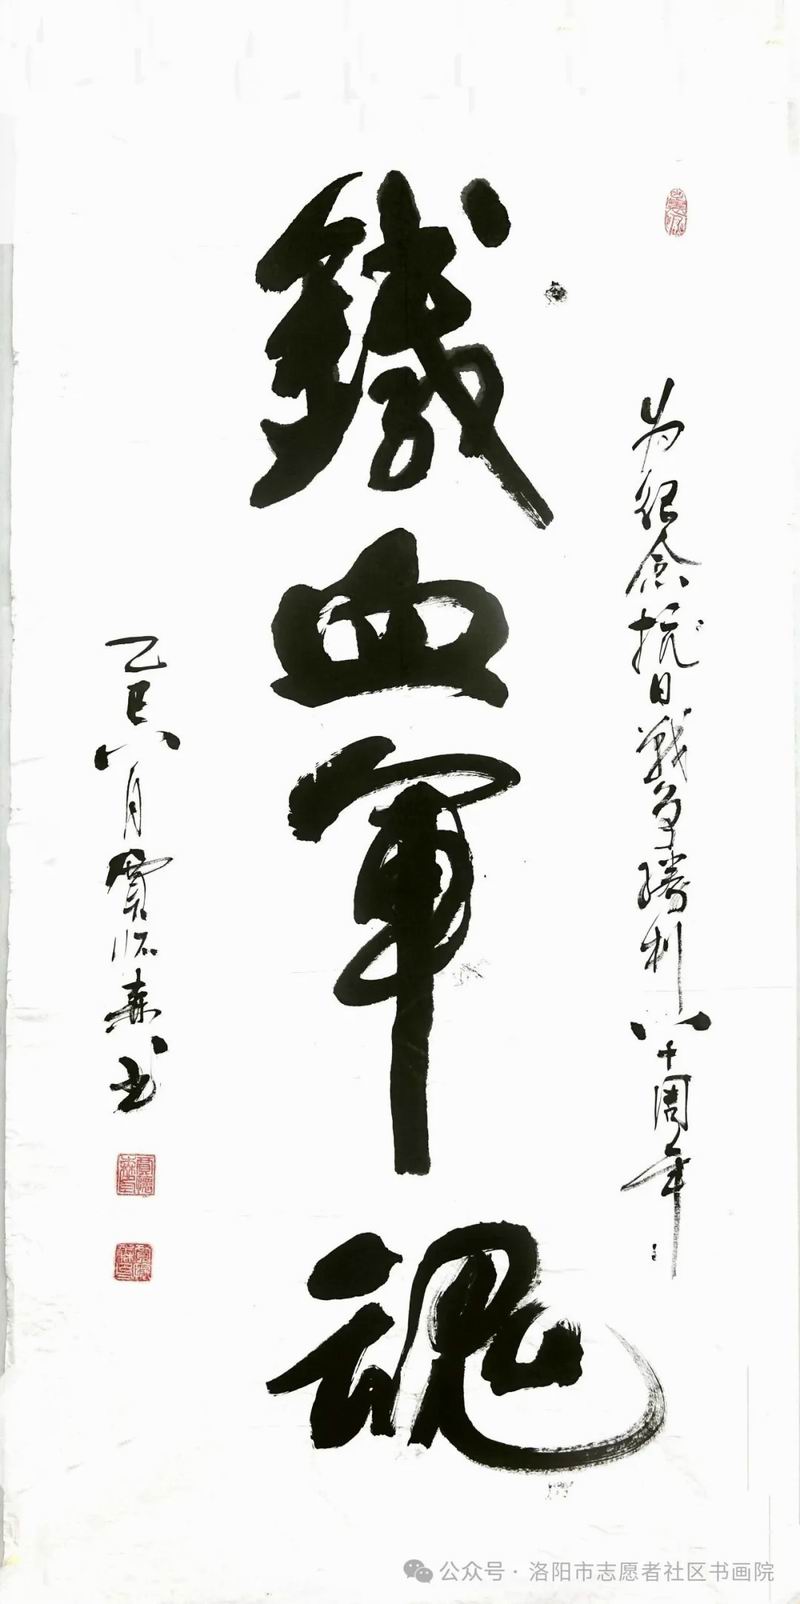 为纪念抗日战争勝利八十周年
鐵血軍魂
乙巳八月賈
森书
公众号·洛阳市志愿者社区书画院